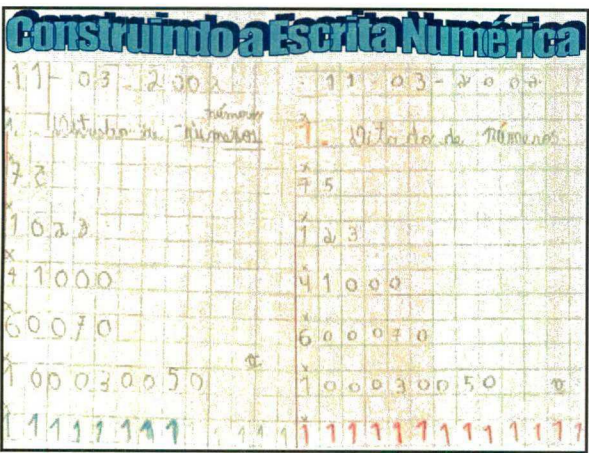 Construindo a Escrita Numérica
11-03-2002
números
1. Ditado de números
7 2
1 0 2 3
4 1 0 0 0
6 0 0 7 0
1 0 0 0 3 0 0 5 0
1 1 1 1 1 1 1 1 1 1 1
11-03-2002
1. Ditado de números
7 5
1 2 3
4 1 0 0 0
6 0 0 0 7 0
1 0 0 0 3 0 0 5 0
1 1 1 1 1 1 1 1 1 1 1 1 1